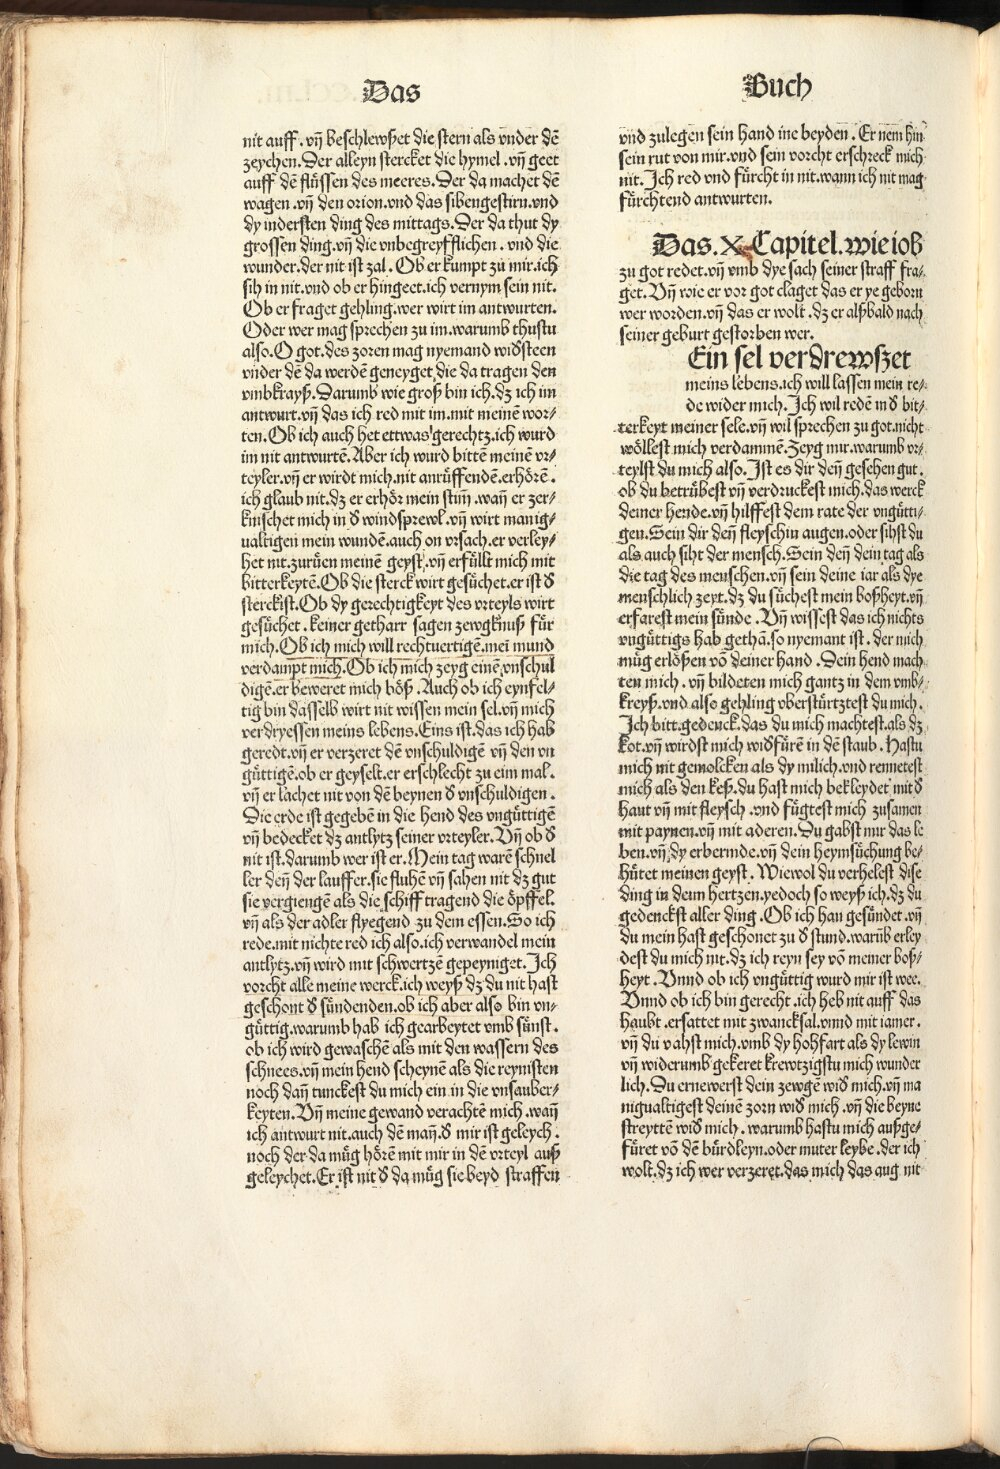 Das
Buch
nit auff. vñ beschlewsset die stern als vnder dē
zeychen. Der alleyn stercket die hymel. vñ geet
auff dē flüssen des meeres. Der da machet dē
wagen. vñ den orion. vnd das sibengestirn. vnd
dy indersten ding des mittags. Der da thut dy
grossen ding. vñ die vnbegreyfflichen. vnd die
wunder. der nit ist zal. Ob er kumpt zů mir. ich
sih in nit. vnd ob er hingeet. ich vernym sein nit.
Ob er fraget gehling. wer wirt im antwurten.
Oder wer mag sprechen zu im. warumb thustu
also. O got. des zoren mag nyemand widsteen
vnder dē da werdē geneyget die da tragen den
vmbkrayß. Darumb wie groß bin ich. dz ich im
antwurt. vñ das ich red mit im. mit meinē wor⸗
ten. Ob ich auch het ettwas gerechtz. ich wurd
im nit antwurtē. Aber ich wurd bittē meinē vr⸗
teyler. vñ er wirdt mich. nit anrüffendē. erhörē.
ich glaub nit. dz er erhör mein stiṁ. wañ er zer⸗
knischet mich in d windsprewl. vñ wirt manig⸗
ualtigen mein wundē. auch on vrsach. er verley⸗
het nit. zurůen meinē geyst. vñ erfüllt mich mit
bitterkeytē. Ob die sterck wirt gesüchet. er ist d
sterckist. Ob dy gerechtigkeyt des vrteyls wirt
gesüchet. keiner getharr sagen zewgknuß für
mich. Ob ich mich will rechtuertigē. mei mund
verdampt mich. Ob ich mich zeyg einē vnschul
digē. er beweret mich böß. Auch ob ich eynfel⸗
tig bin dasselb wirt nit wissen mein sel. vñ mich
verdryessen meins lebens. Eins ist. das ich hab
geredt. vñ er verzeret dē vnschuldigē vñ den vn
güttigē. ob er geyselt. er erschlecht zu eim mal.
vñ er lachet nit von dē beynen d vnschuldigen.
Die erde ist gegebē in die hend des vngüttigē
vñ bedecket dz antlytz seiner vrteyler. Vñ ob d
nit ist. darumb wer ist er. Mein tag warē schnel
ler deñ der lauffer. sie fluhē vñ sahen nit dz gut
sie vergiengē als die schiff tragend die öpffel.
vñ als der adler flyegend zu dem essen. So ich
rede. mit nichte red ich also. ich verwandel mein
antlytz. vñ wird mit schwertzē gepeyniget. Ich
vorcht alle meine werck. ich weyß dz du nit hast
geschont d sündenden. ob ich aber also bin vn⸗
güttig. warumb hab ich gearbeytet vmb sünst.
ob ich wird gewaschē als mit den wassern des
schnees. vñ mein hend scheynē als die reynisten
noch dañ tunckest du mich ein in die vnsauber⸗
keyten. Vñ meine gewand verachtē mich. wañ
ich antwurt nit. auch dē mañ. d mir ist geleych.
noch der da müg hörē mit mir in dē vrteyl auß
geleychet. Er ist nit d da müg sie beyd straffen
vnd zulegen sein hand ine beyden. Er nem hin
sein rut von mir. vnd sein vorcht erschreck mich
nit. Ich red vnd fürcht in nit. wann ich nit mag
fürchtend antwurten.
Das. X. Capitel. wie iob
zu got redet. vñ vmb dye sach seiner straff fra⸗
get. Vñ wie er vor got claget das er ye geborn
wer worden. vñ das er wolt. dz er alßbald nach
seiner geburt gestorben wer.
Ein sel verdrewsset
meins lebens. ich will lassen mein re⸗
de wider mich. Ich wil redē in d bit⸗
terkeyt meiner sele. vñ wil sprechen zu got. nicht
wöllest mich verdammē. Zeyg mir. warumb vr⸗
teylst du mich also. Ist es dir deñ gesehen gut.
ob du betrübest vñ verdruckest mich. das werck
deiner hende. vñ hilffest dem rate der vngütti⸗
gen. Sein dir deñ fleyschin augen. oder sihst du
als auch siht der mensch. Sein deñ dein tag als
die tag des menschen. vñ sein deine iar als dye
menschlich zeyt. dz du süchest mein boßheyt. vñ
erfarest mein sünde. Vñ wissest das ich nichts
vngüttigs hab gethā. so nyemant ist. der mich
müg erlößen vō deiner hand. Dein hend mach
ten mich. vñ bildeten mich gantz in dem vmb⸗
kreyß. vnd also gehling vberstürtztest du mich.
Ich bitt. gedenck. das du mich machtest. als dz
kot. vñ wirdst mich widfürē in dē staub. Hastu
mich nit gemolcken als dy milich. vnd rennetest
mich als den keß. du hast mich bekleydet mit d
haut vñ mit fleysch. vnd fügtest mich zusamen
mit paynen. vñ mit aderen. Du gabst mir das le
ben. vñ dy erbermde. vñ dein heymsüchung be⸗
hütet meinen geyst. Wiewol du verhelest dise
ding in deim hertzen. yedoch so weyß ich. dz du
gedenckst aller ding. Ob ich han gesündet. vñ
du mein hast geschonet zu d stund. warūb erley
dest du mich nit. dz ich reyn sey vō meiner boß⸗
heyt. Vnnd ob ich vngüttig wurd mir ist wee.
Vnnd ob ich bin gerecht. ich heb nit auff das
haubt. ersattet mit zwancksal. vnnd mit iamer.
vñ du vahst mich. vmb dy hohfart als dy lewin
vñ widerumb gekeret krewtzigstu mich wunder
lich. Du ernewerst dein zewgē wid mich. vñ ma
nigualtigest deinē zorn wid mich. vñ die beyne
streyttē wid mich. warumb hastu mich außge⸗
füret vō dē bürdleyn. oder muter leybe. der ich
wolt. dz ich wer verzeret. das mich das aug nit